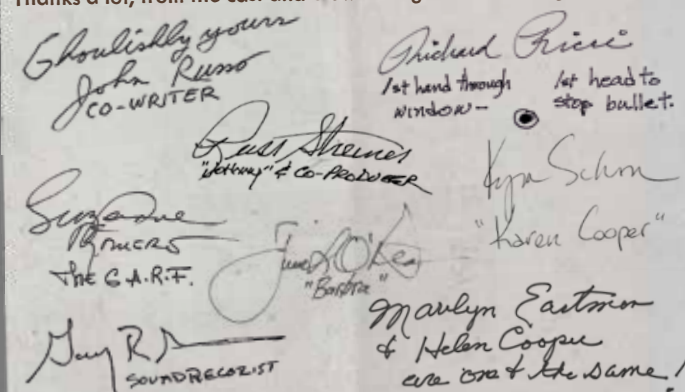 Thanks a lot, from the cast and
Ghoulishly yours
John Russo
CO-WRITER
Richard Ricci
1st hand through
window—
1st head to
stop bullet.
Russ Streiner
"Johnny" & CO-PRODUCER
Kyra Schon
"Karen Cooper"
Suzanne
ROMERO
THE G.A.R.F.
Judith O'Dea
"Barbra"
Marilyn Eastman
& Helen Cooper
are one & the same!
Gary R
SOUND RECORDIST